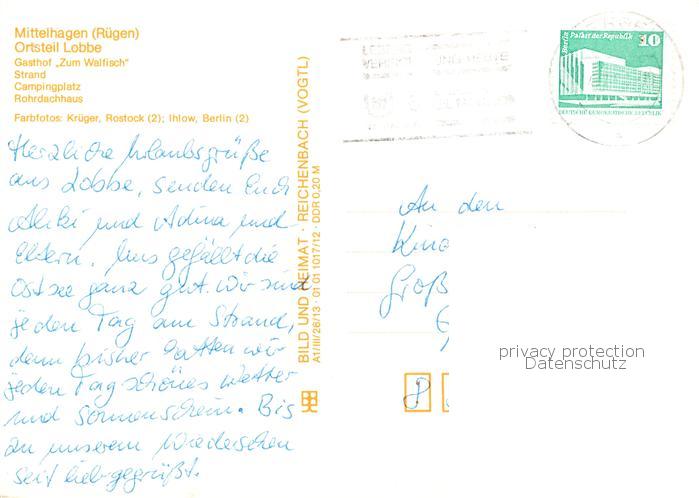 Mittelhagen (Rügen)
Ortsteil Lobbe
Gasthof „Zum Walfisch"
Strand
Campingplatz
Rohrdachhaus
Farbfotos: Krüger, Rostock (2); Ihlow, Berlin (2)
Herzliche Urlaubsgrüße
aus Lobbe, senden Euch
und Adina und
Eltern. Uns gefällt die
Ostsee ganz gut. Wir sind
jeden Tag am Strand,
denn bisher hatten wir
jeden Tag schönes Wetter
und Sonnenschein. Bis
zu unserem Wiedersehen
seit lieb gegrüßt.
BILD UND HEIMAT · REICHENBACH (VOGTL)
A1/III/26/13 · 01 01 1017/12 · DDR 0,20 M
Berlin Palast der Republik 10
DEUTSCHE DEMOKRATISCHE REPUBLIK
An den
Kind
Groß
8
privacy protection
Datenschutz